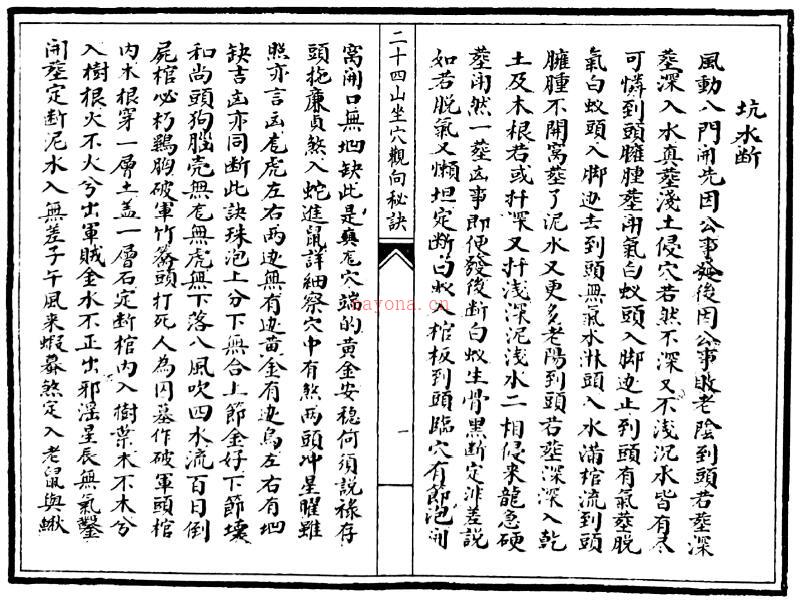 坑水断
風動八門開先因公事発後因公事敗老陰到頭若塟深
塟深入水真塟淺土侵穴若然不深又不浅沉水皆有尽
可憐到頭臃腫塟開氣白蚁頭入脚边止到頭有氣塟脱
氣白蚁頭入脚边去到頭無氣水淋頭入水滿棺流到頭
臃腫不開窩塟了泥水又更多老陽到頭若塟深深入乾
土及木根若或扦深又扦浅深泥浅水二相侵来龍急硬
塟開然一塟凶事即便發後断白蚁生骨黑断定非差説
如若脱氣又懶坦定断白蚁入棺板到頭臨穴有節泡開
二十四山坐穴觀向秘訣
一
窩開口無凹缺此是真龙穴端的黄金安穏何須説禄存
頭拖廉貞煞入蛇進鼠詳細察穴中有煞两頭冲星曜雖
照亦言凶龙虎左右两边無有边黄金有边烏左右有凹
缺吉凶亦同断此訣珠泡上分下無合上節金好下節壊
和尚頭狗腦壳無龙無虎無下落八風吹四水流百日倒
屍棺必朽鷄胸破軍竹篙頭打死人為囚墓作破軍頭棺
内木根穿一層土盖一層石定断棺内入樹葉木不木兮
入樹根火不火兮出軍賊金水不正出邪淫星辰無氣鑿
開塟定断泥水入無差子午風来蝦蟇煞定入老鼠與鰍
nayona.cn